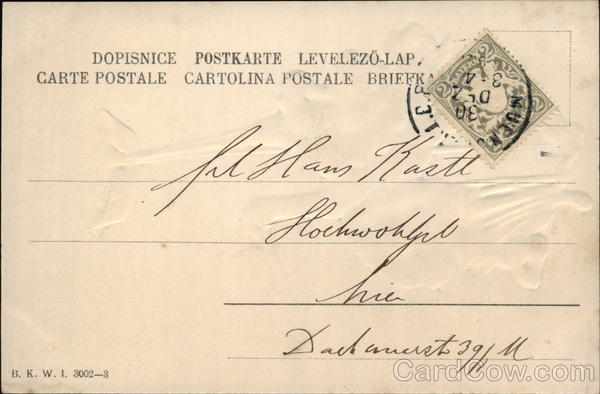 DOPISNICE POSTKARTE LEVELEZŐ-LAP.
CARTE POSTALE CARTOLINA POSTALE BRIEFKA
2 2
30 DEZ
3-4
MUEN
Hans Kastl
Hochwohlgb
hier
Dachauerstr 39/
B. K. W. I. 3002—3
CardCow.com